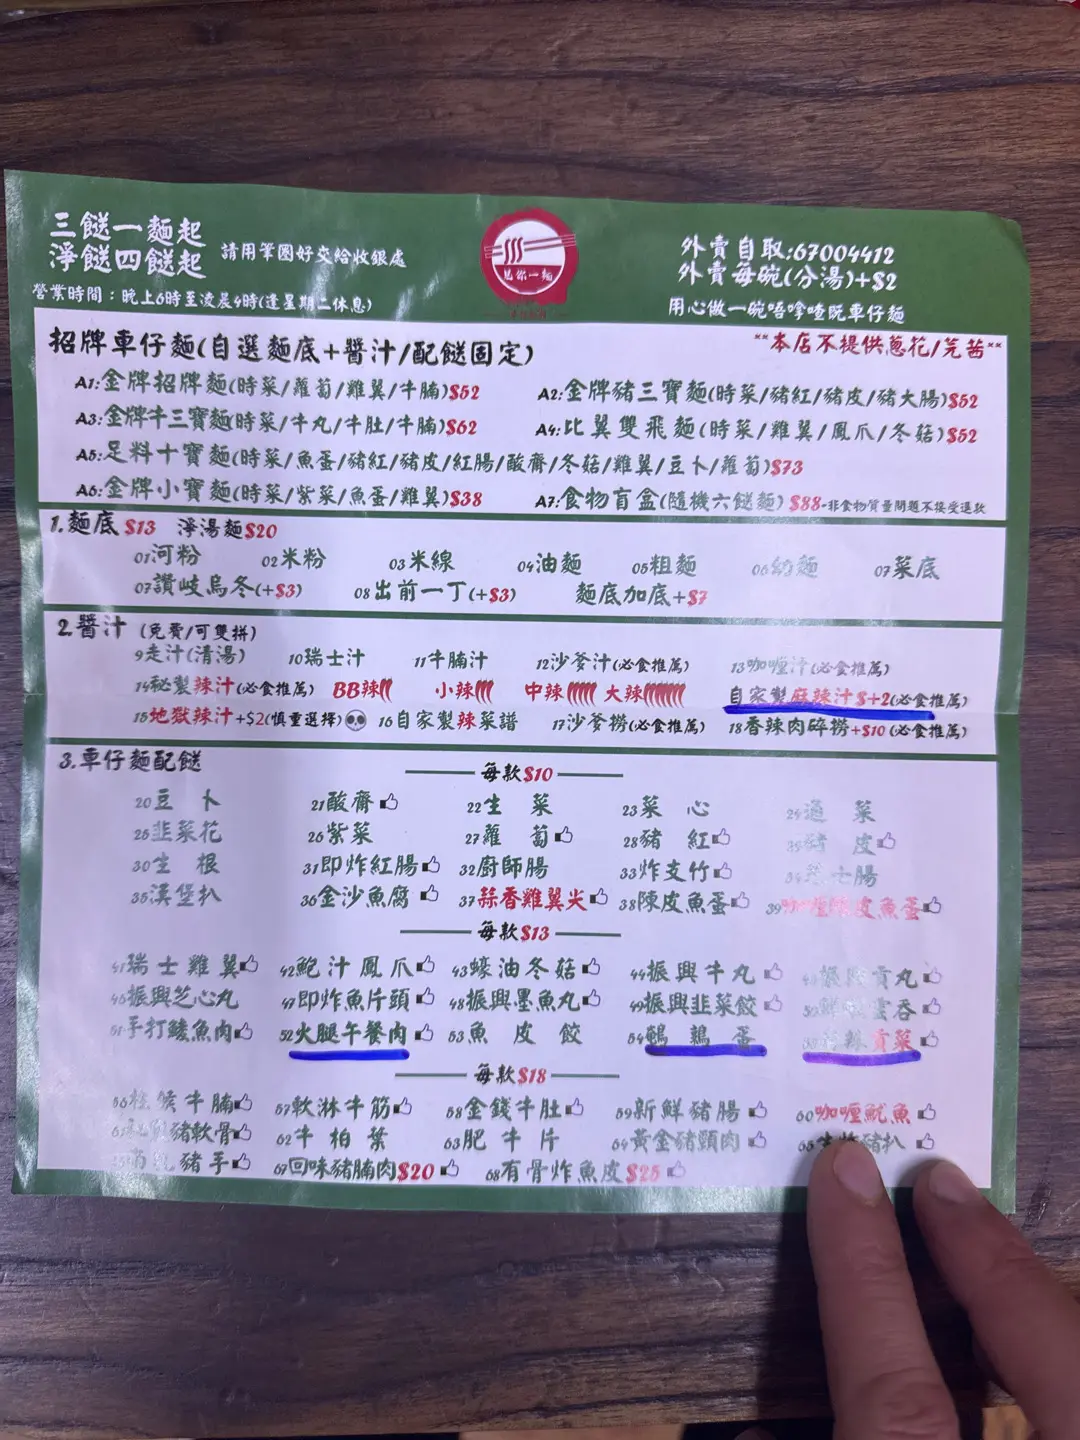 三餸一麵起
淨餸四餸起
請用筆圈好交給收銀處
營業時間：晚上6時至凌晨4時(逢星期二休息)
外賣自取:67004412
外賣每碗(分湯)+$2
用心做一碗唔嗲嗲既車仔麵
招牌車仔麵(自選麵底+醬汁/配餸固定)
**本店不提供蔥花/芫茜**
A1:金牌招牌麵(時菜/蘿蔔/雞翼/牛腩)$52
A2:金牌豬三寶麵(時菜/豬紅/豬皮/豬大腸)$52
A3:金牌牛三寶麵(時菜/牛丸/牛肚/牛腩)$62
A4:比翼雙飛麵(時菜/雞翼/鳳爪/冬菇)$52
A5:足料十寶麵(時菜/魚蛋/豬紅/豬皮/紅腸/酸齋/冬菇/雞翼/豆卜/蘿蔔)$73
A6:金牌小寶麵(時菜/紫菜/魚蛋/雞翼)$38
A7:食物盲盒(隨機六餸麵) $88-非食物質量問題不接受退款
1.麵底$13 淨湯麵$20
01河粉 02米粉 03米線 04油麵 05粗麵 06幼麵 07菜底
07讚岐烏冬(+$3) 08出前一丁(+$3) 麵底加底+$7
2.醬汁 (免費/可雙拼)
9走汁(清湯) 10瑞士汁 11牛腩汁 12沙爹汁(必食推薦) 13咖喱汁(必食推薦)
14秘製辣汁(必食推薦) BB辣 小辣 中辣 大辣 自家製麻辣汁$+2(必食推薦)
15地獄辣汁+$2(慎重選擇) 16自家製辣菜譜 17沙爹撈(必食推薦) 18香辣肉碎撈+$10(必食推薦)
3.車仔麵配餸
每款$10
20豆卜 21酸齋 22生菜 23菜心 24通菜
25韭菜花 26紫菜 27蘿蔔 28豬紅 29豬皮
30生根 31即炸紅腸 32廚師腸 33炸支竹 34芝士腸
35漢堡扒 36金沙魚腐 37蒜香雞翼尖 38陳皮魚蛋 39咖喱陳皮魚蛋
每款$13
41瑞士雞翼 42鮑汁鳳爪 43蠔油冬菇 44振興牛丸 45振興貢丸
46振興芝心丸 47即炸魚片頭 48振興墨魚丸 49振興韭菜餃 50鮮蝦雲吞
51手打鯪魚肉 52火腿午餐肉 53魚皮餃 54鵪鶉蛋 貢菜
每款$18
56柱侯牛腩 57軟淋牛筋 58金錢牛肚 59新鮮豬腸 60咖喱魷魚
豬軟骨 62牛柏葉 63肥牛片 64黃金豬頸肉 65生炸豬扒
南乳豬手 67回味豬腩肉$20 68有骨炸魚皮$25